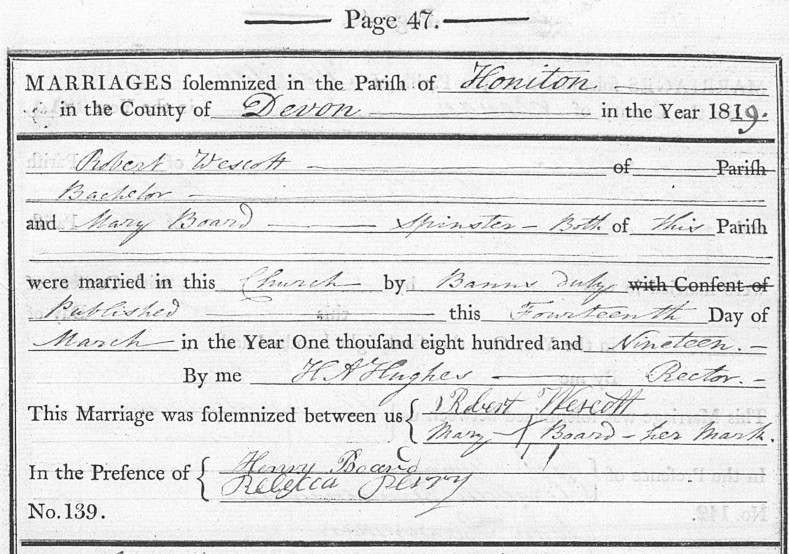 Page 47.
MARRIAGES solemnized in the Parish of Honiton
in the County of Devon in the Year 1819.
Robert Wescott of Parish
Bachelor
and Mary Board Spinster - Both of this Parish
were married in this Church by Banns duly with Consent of
Published this Fourteenth Day of
March in the Year One thousand eight hundred and Nineteen.
By me H A Hughes Rector.
This Marriage was solemnized between us { Robert Wescott
Mary X Board - her Mark.
In the Presence of { Henry Board
Rebecca Perry
No. 139.